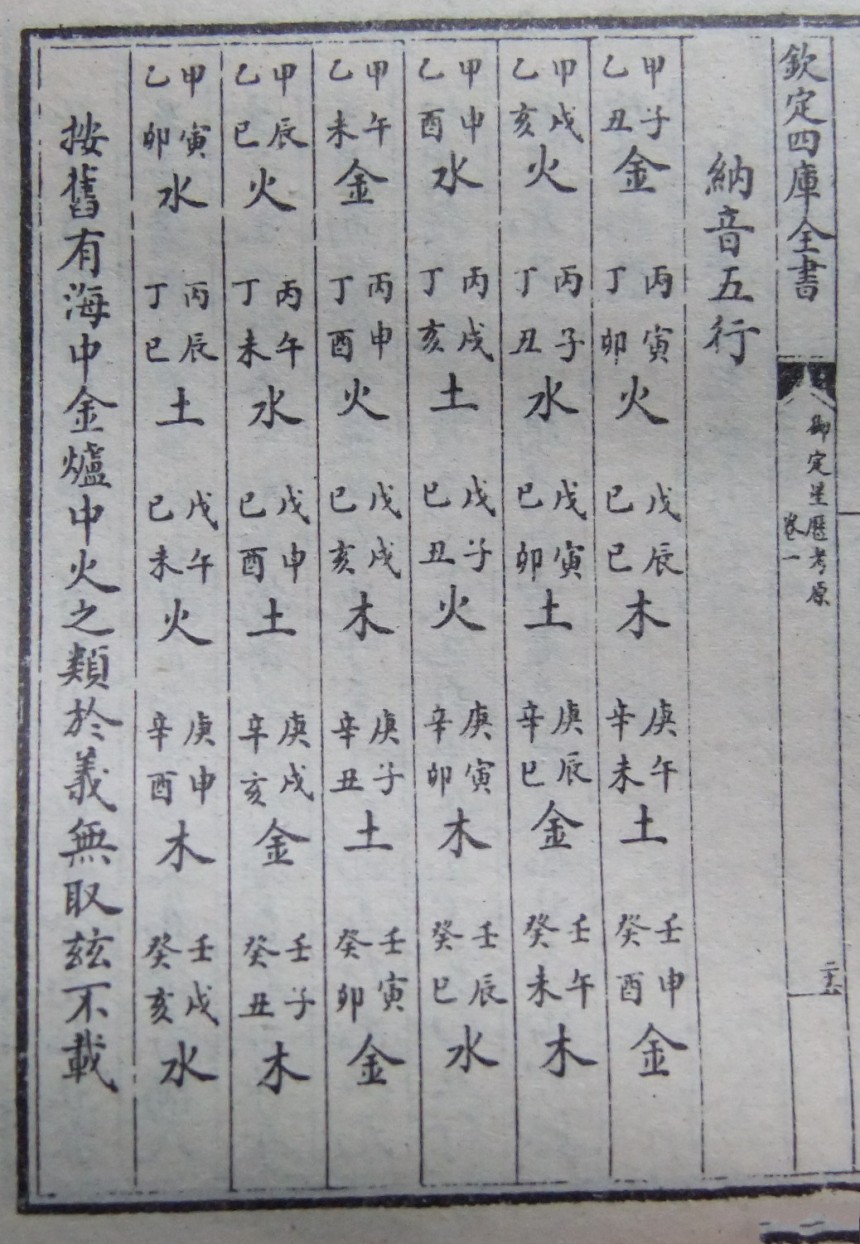 欽定四庫全書
御定星歷考原
卷一
納音五行
甲子乙丑金 丙寅丁卯火 戊辰己巳木 庚午辛未土 壬申癸酉金
甲戌乙亥火 丙子丁丑水 戊寅己卯土 庚辰辛巳金 壬午癸未木
甲申乙酉水 丙戌丁亥土 戊子己丑火 庚寅辛卯木 壬辰癸巳水
甲午乙未金 丙申丁酉火 戊戌己亥木 庚子辛丑土 壬寅癸卯金
甲辰乙巳火 丙午丁未水 戊申己酉土 庚戌辛亥金 壬子癸丑木
甲寅乙卯水 丙辰丁巳土 戊午己未火 庚申辛酉木 壬戌癸亥水
按舊有海中金爐中火之類於義無取玆不載